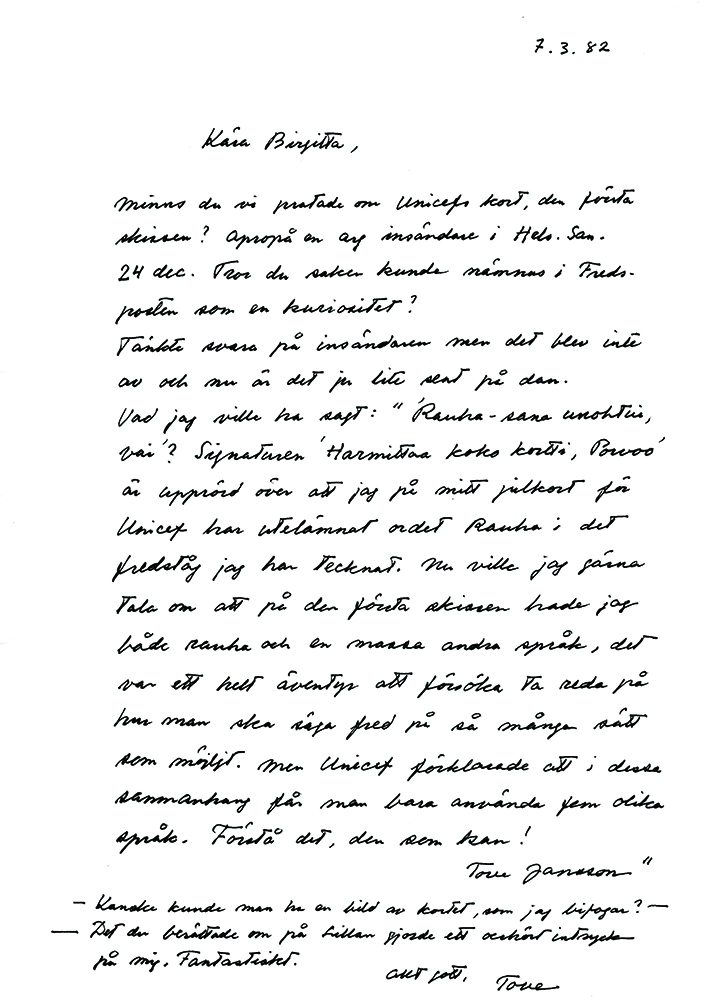 7.3.82
Kära Birgitta,
Minns du vi pratade om Unicefs kort, den första
skissen? Apropå en arg insändare i Hels. San.
24 dec. Tror du saken kunde nämnas i Freds-
posten som en kuriositet?
Tänkte svara på insändaren men det blev inte
av och nu är det ju lite sent på dan.
Vad jag ville ha sagt: "'Rauha-sana unohtui,
vai'? Signaturen 'Harmittaa koko kortti, Porvoo'
är upprörd över att jag på mitt julkort för
Unicef har utelämnat ordet Rauha i det
fredståg jag har tecknat. Nu ville jag gärna
tala om att på den första skissen hade jag
både rauha och en massa andra språk, det
var ett helt äventyr att försöka ta reda på
hur man ska säga fred på så många sätt
som möjligt. Men Unicef förklarade att i dessa
sammanhang får man bara använda fem olika
språk. Förstå det, den som kan!
Tove Jansson"
— Kanske kunde man ha en bild av kortet, som jag bifogar? —
— Det du berättade om på Lillan gjorde ett oerhört intryck
på mig. Fantastiskt.
Allt gott, Tove